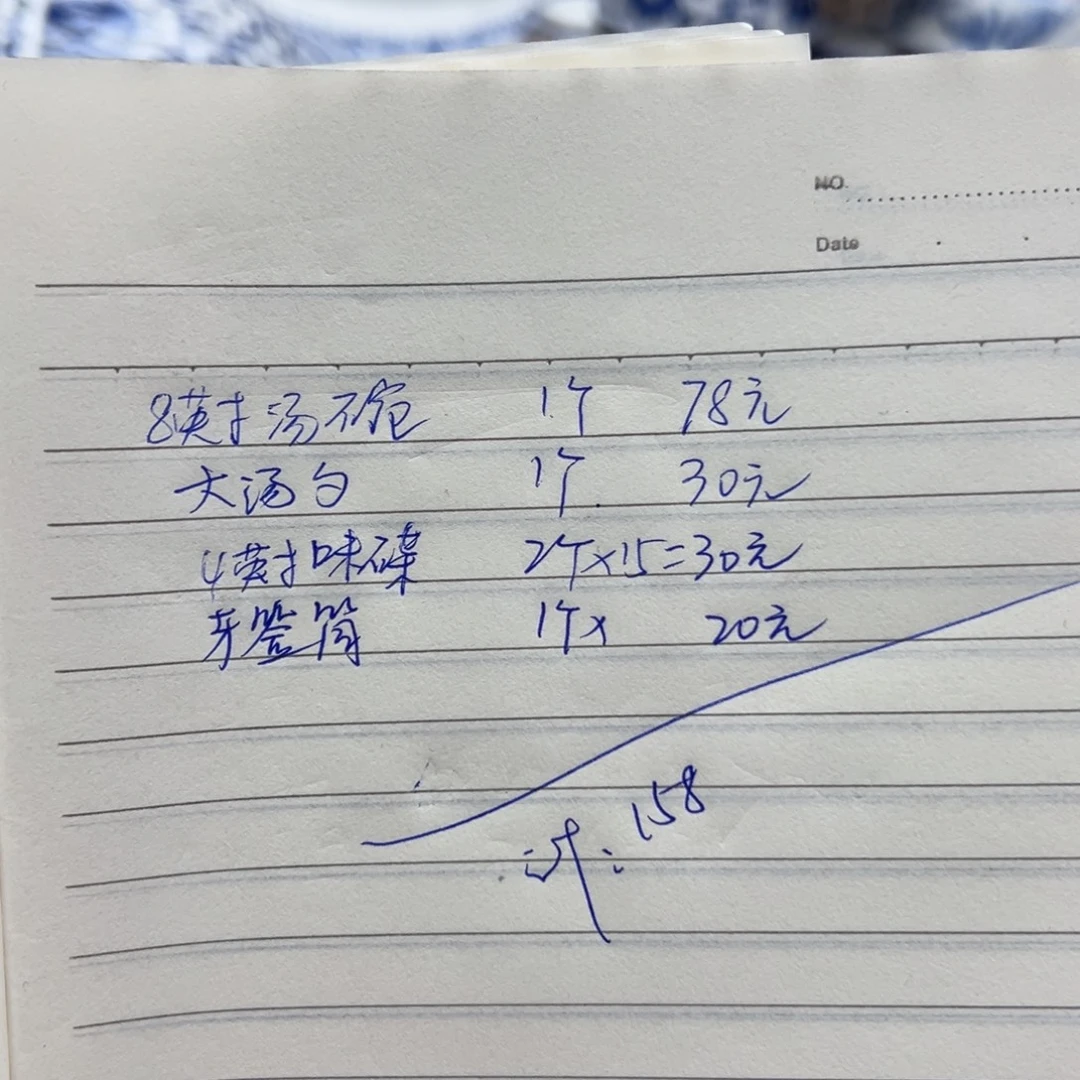 NO.
Date
8英寸汤碗 1个 78元
大汤勺 1个 30元
4英寸味碟 2个×15=30元
牙签筒 1个× 20元
计:158